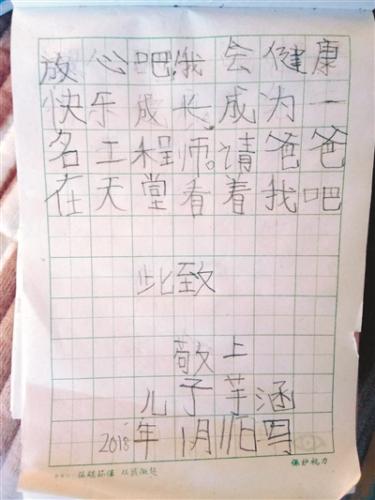 放心吧,我会健康
快乐成长,成为一
名工程师。请爸爸
在天堂看着我吧
此致
敬上
儿子芋涵
2018年1月11日
保护视力